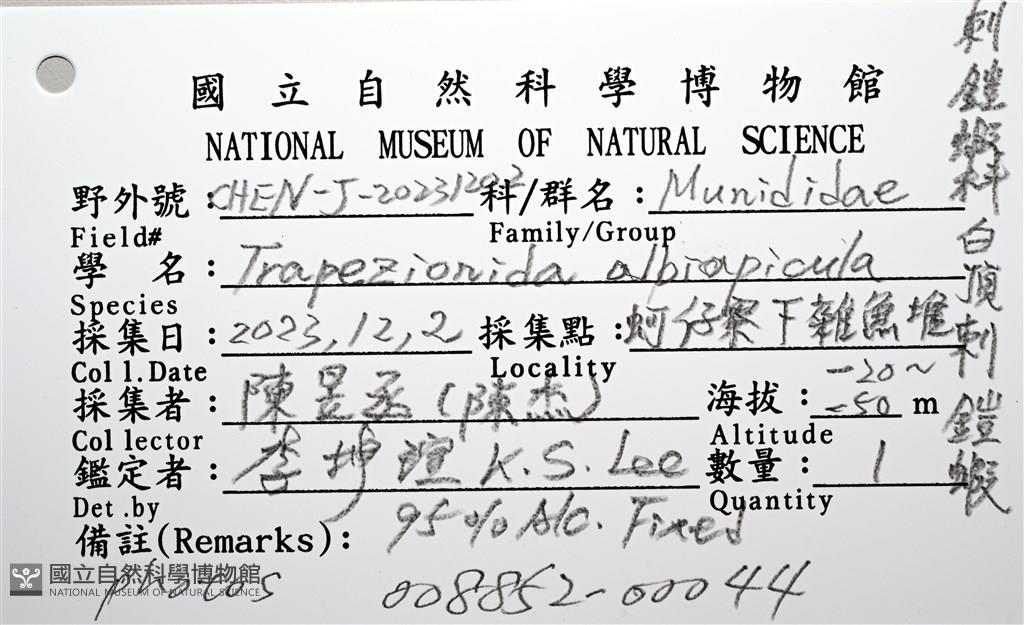 國立自然科學博物館
NATIONAL MUSEUM OF NATURAL SCIENCE
野外號:CHEN-J-20231202 科/群名:Munididae
Field# Family/Group
學 名:Trapezionida albiapicula
Species
採集日:2023,12,2 採集點:蚵仔寮下雜魚堆
Coll.Date Locality
採集者:陳昱丞(陳杰) 海拔:-20~-50 m
Collector Altitude
鑑定者:李坤瑄 K.S. Lee 數量:1
Det.by Quantity
備註(Remarks): 95% Alc. Fixed
photos 008852-00044
刺鎧蝦科 白頂刺鎧蝦
國立自然科學博物館
NATIONAL MUSEUM OF NATURAL SCIENCE